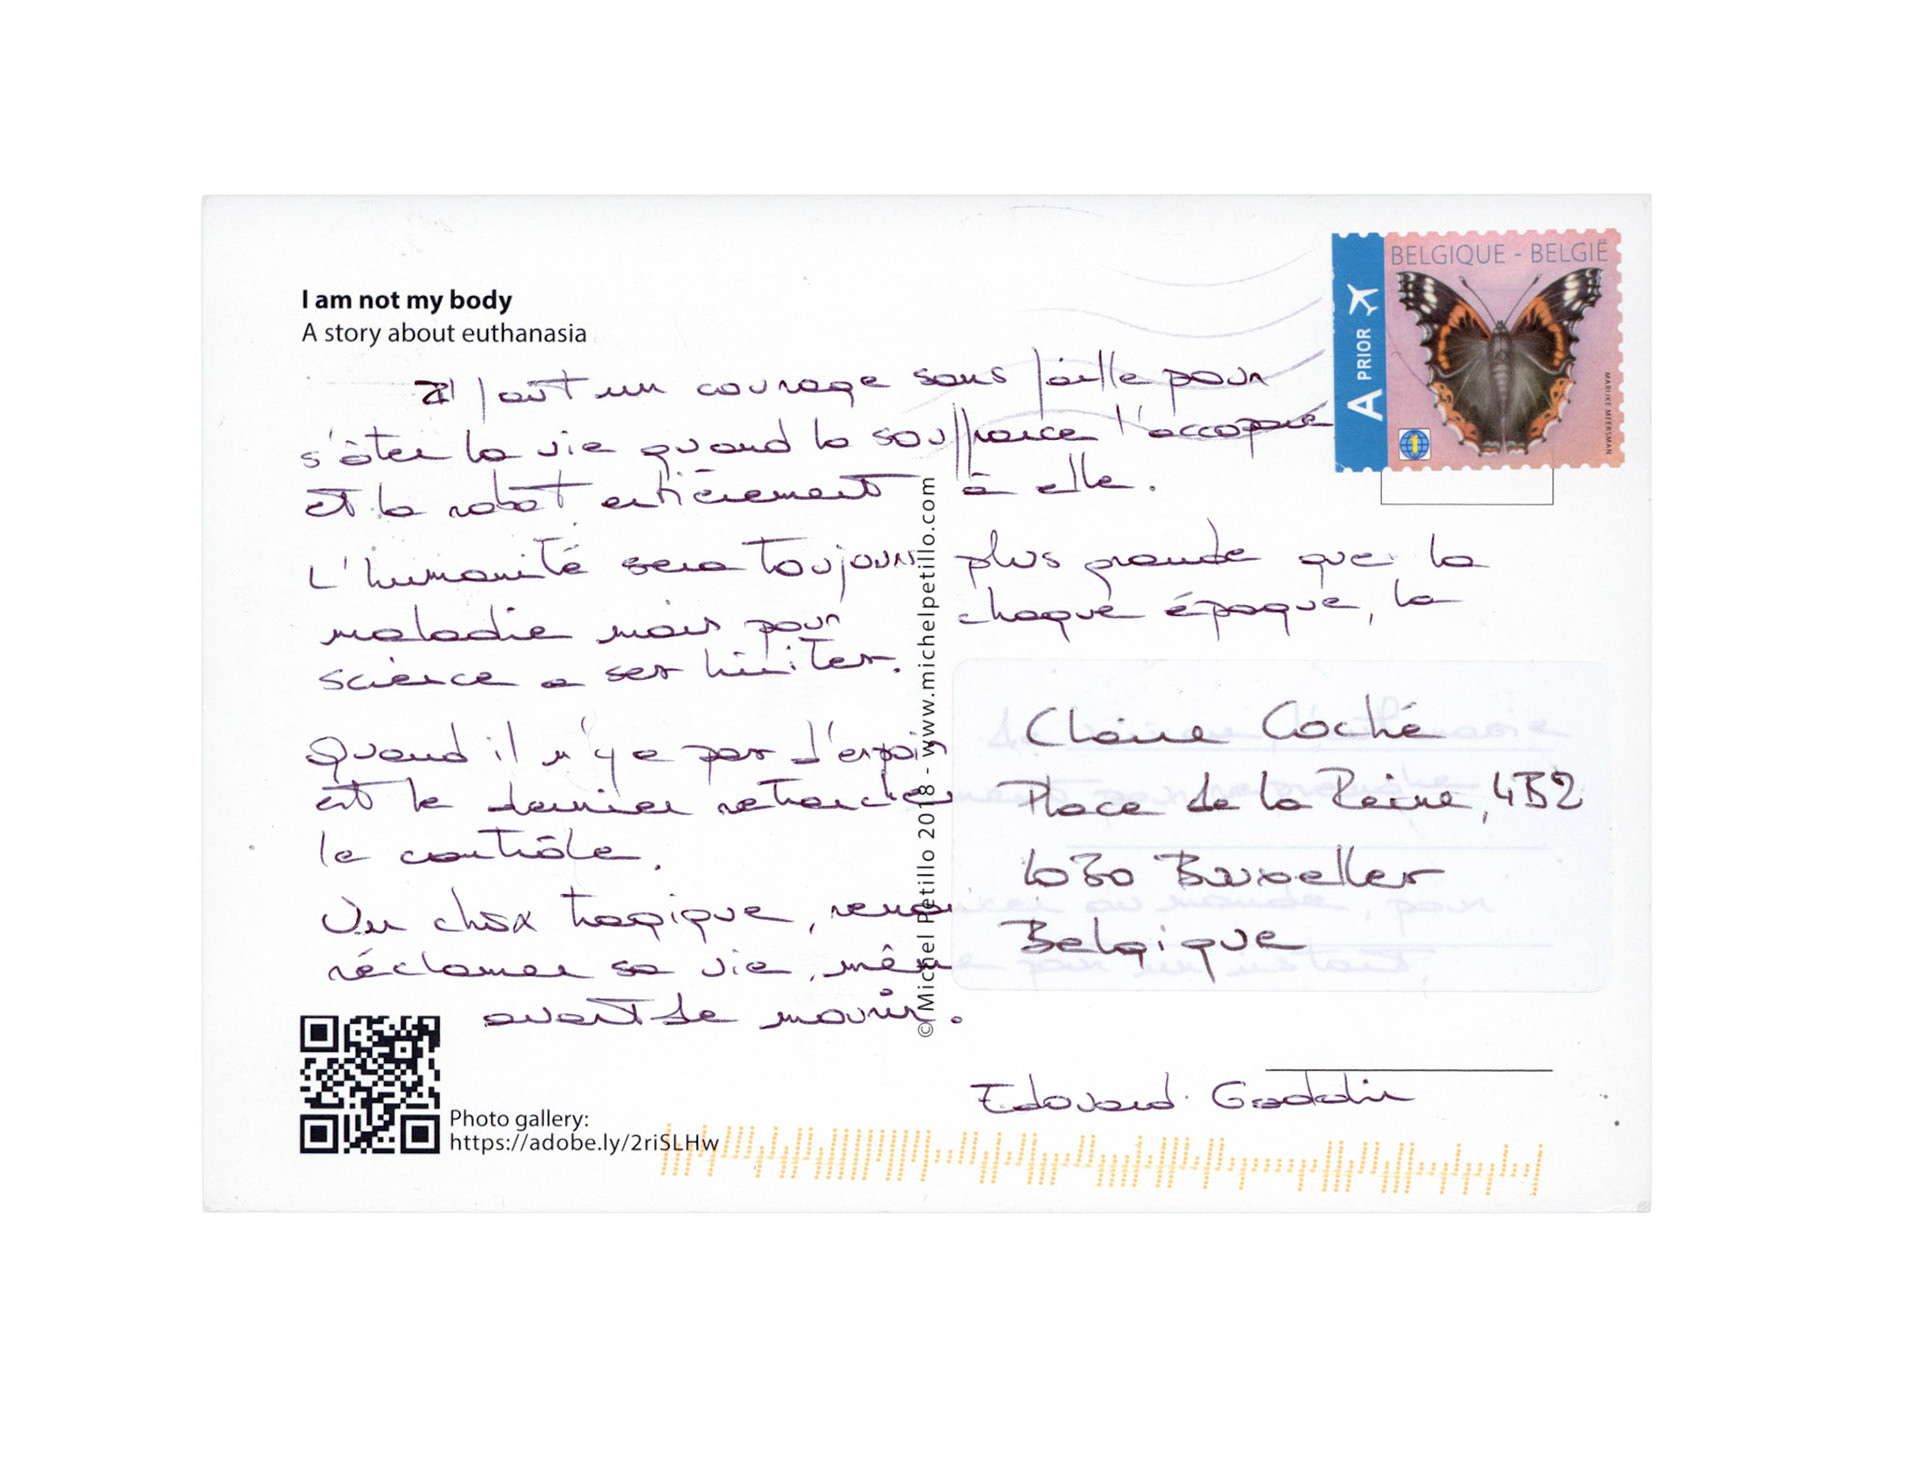 I am not my body
A story about euthanasia
BELGIQUE - BELGIË
A PRIOR
MARIJKE MEERSMAN
1
Il faut un courage sans faille pour
s'ôter la vie quand la souffrance l'accapare
et la rabat entièrement à elle.
L'humanité sera toujours plus grande que la
maladie mais pour chaque époque, la
science a ses limites.
Quand il n'y a pas d'espoir
est le dernier
le contrôle.
Un choix tragique,
réclamer sa vie, même pour un instant,
avant de mourir.
Claire Coché
Place de la Reine, 4B2
1030 Bruxelles
Belgique
© Michel Petillo 2018 - www.michelpetillo.com
Edouard
Photo gallery:
https://adobe.ly/2riSLHw